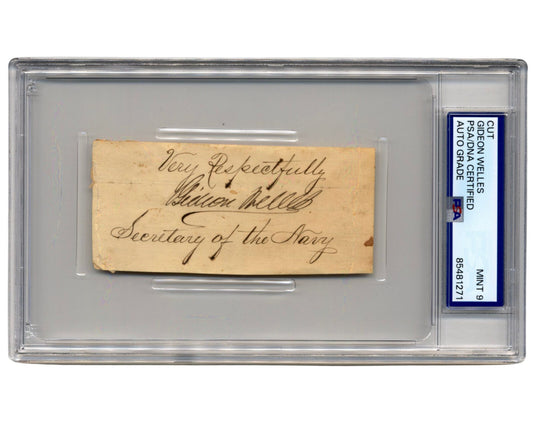 Very Respectfully
Gideon Welles
Secretary of the Navy
CUT
GIDEON WELLES
PSA/DNA CERTIFIED
AUTO GRADE
PSA
MINT 9
85481271